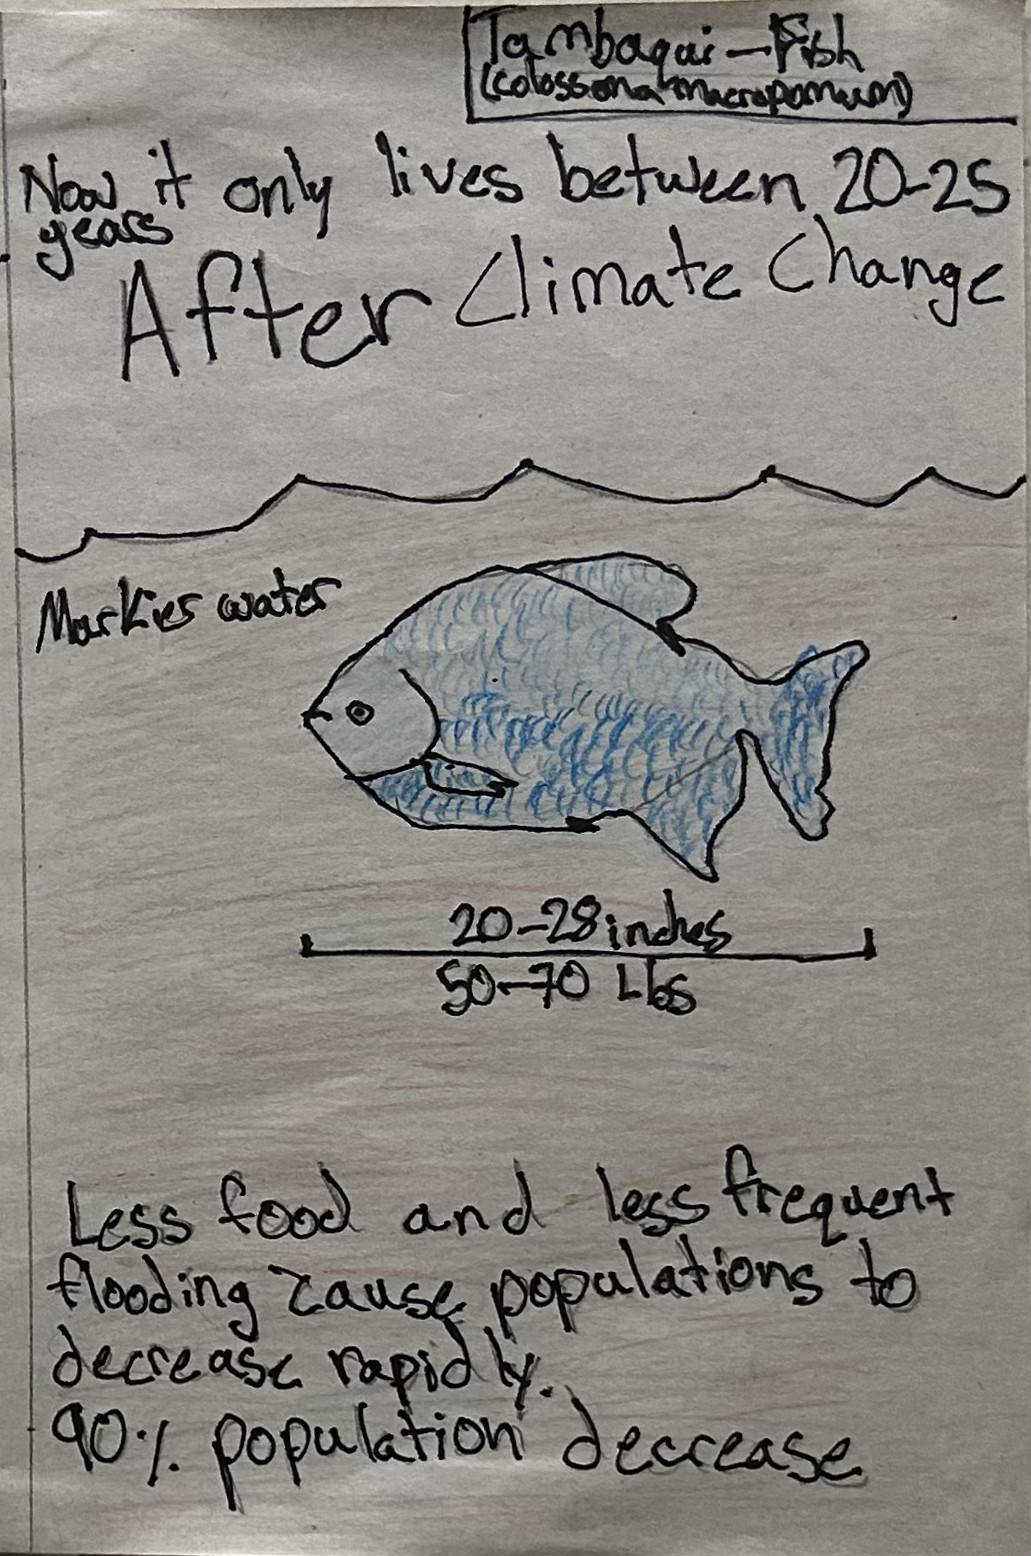 Tambaqui - Fish
(Colossoma macropomum)
Now it only lives between 20-25
years
After Climate Change
Murkier water
20-28 inches
50-70 Lbs
Less food and less frequent
flooding cause populations to
decrease rapidly.
90% population decrease